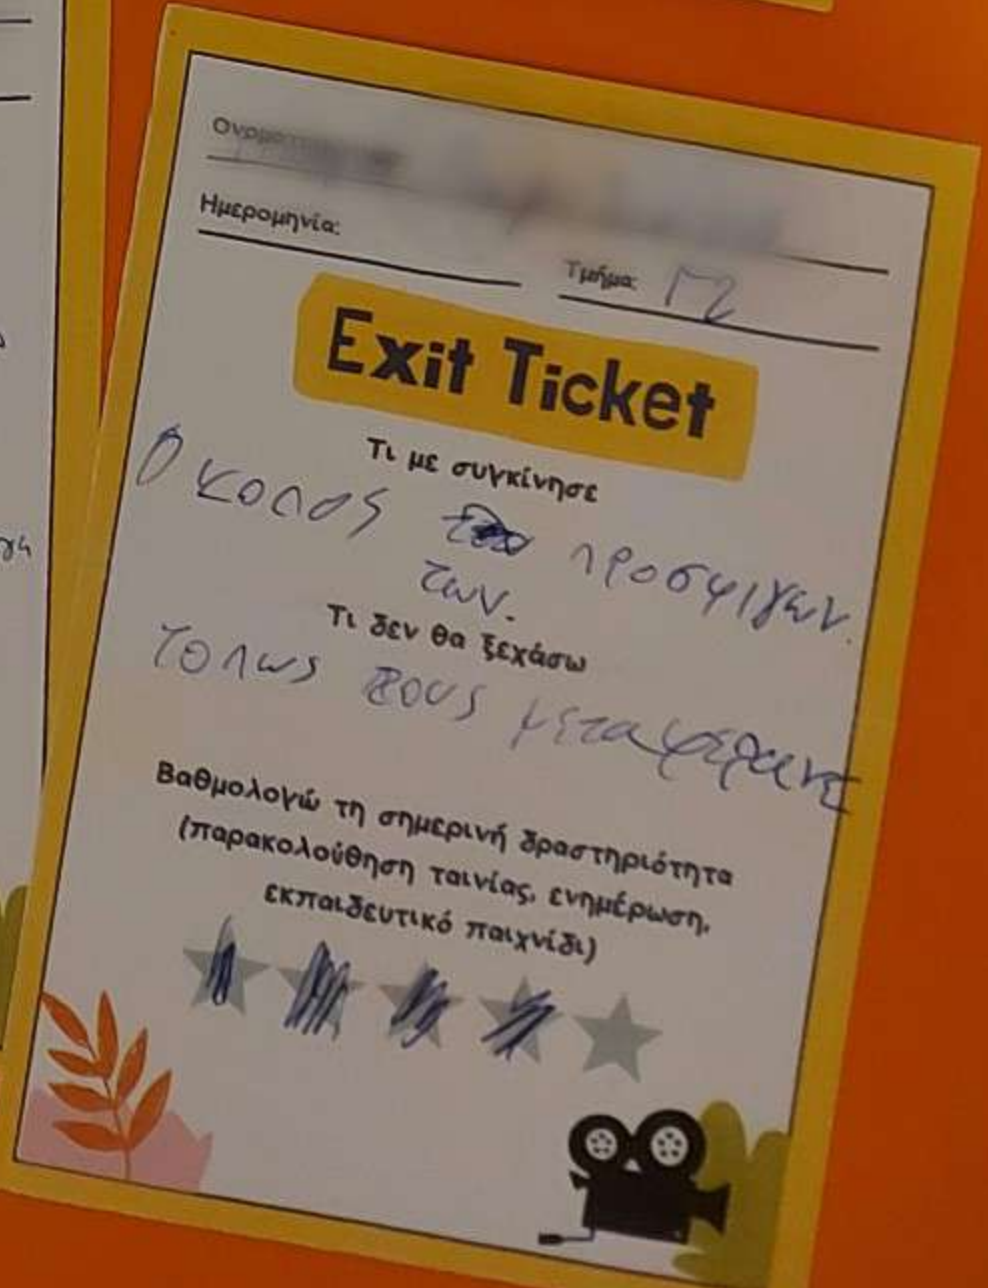 Ημερομηνία:
Τμήμα: Γ2
Exit Ticket
Τι με συγκίνησε
Ο κολος προσφιγων.
των.
Τι δεν θα ξεχάσω
το πως τους μεταφεραν
Βαθμολογώ τη σημερινή δραστηριότητα
(παρακολούθηση ταινίας, ενημέρωση,
εκπαιδευτικό παιχνίδι)